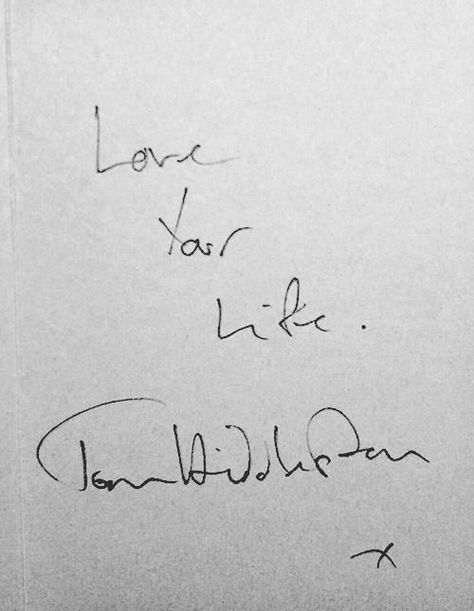 Love
Your
Life.
Tom Hiddleston
x